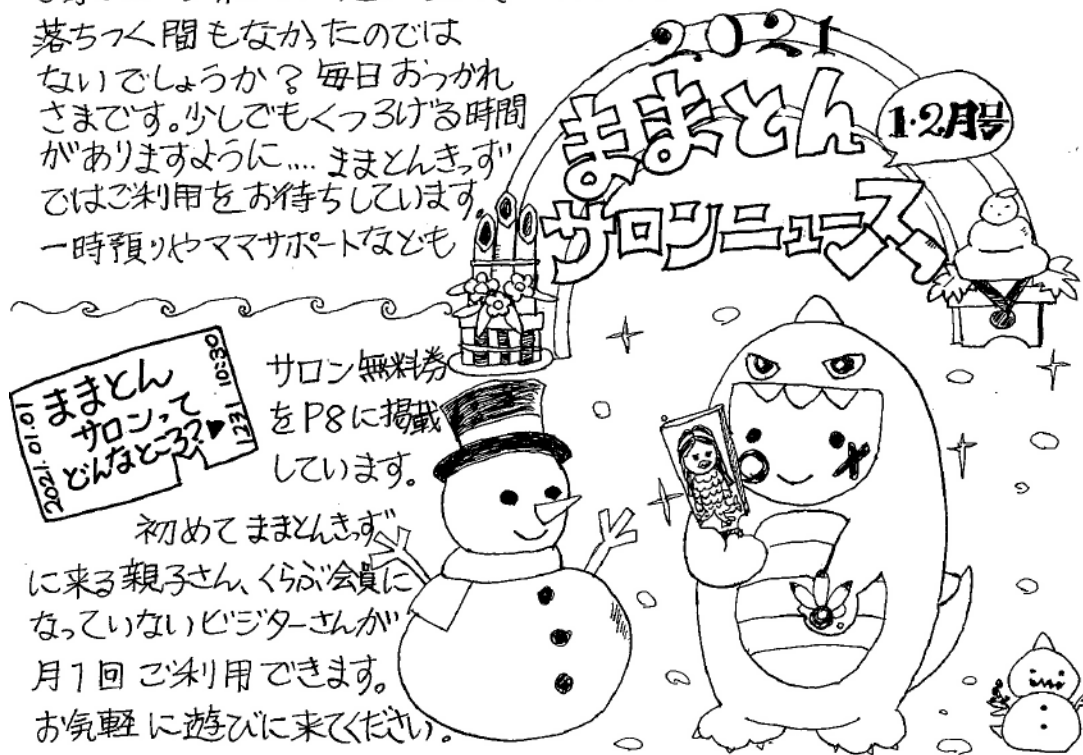 落ちつく間もなかったのでは
ないでしょうか？毎日おつかれ
さまです。少しでもくつろげる時間
がありますように....ままとんきっず
ではご利用をお待ちしています。
一時預りやママサポートなども
2021
ままとん
サロンニュース
1・2月号
ままとん
サロンって
どんなところ？
サロン無料券
をP8に掲載
しています。
初めてままとんきっず
に来る親子さん、くらぶ会員に
なっていないビジターさんが
月1回ご利用できます。
お気軽に遊びに来てください。